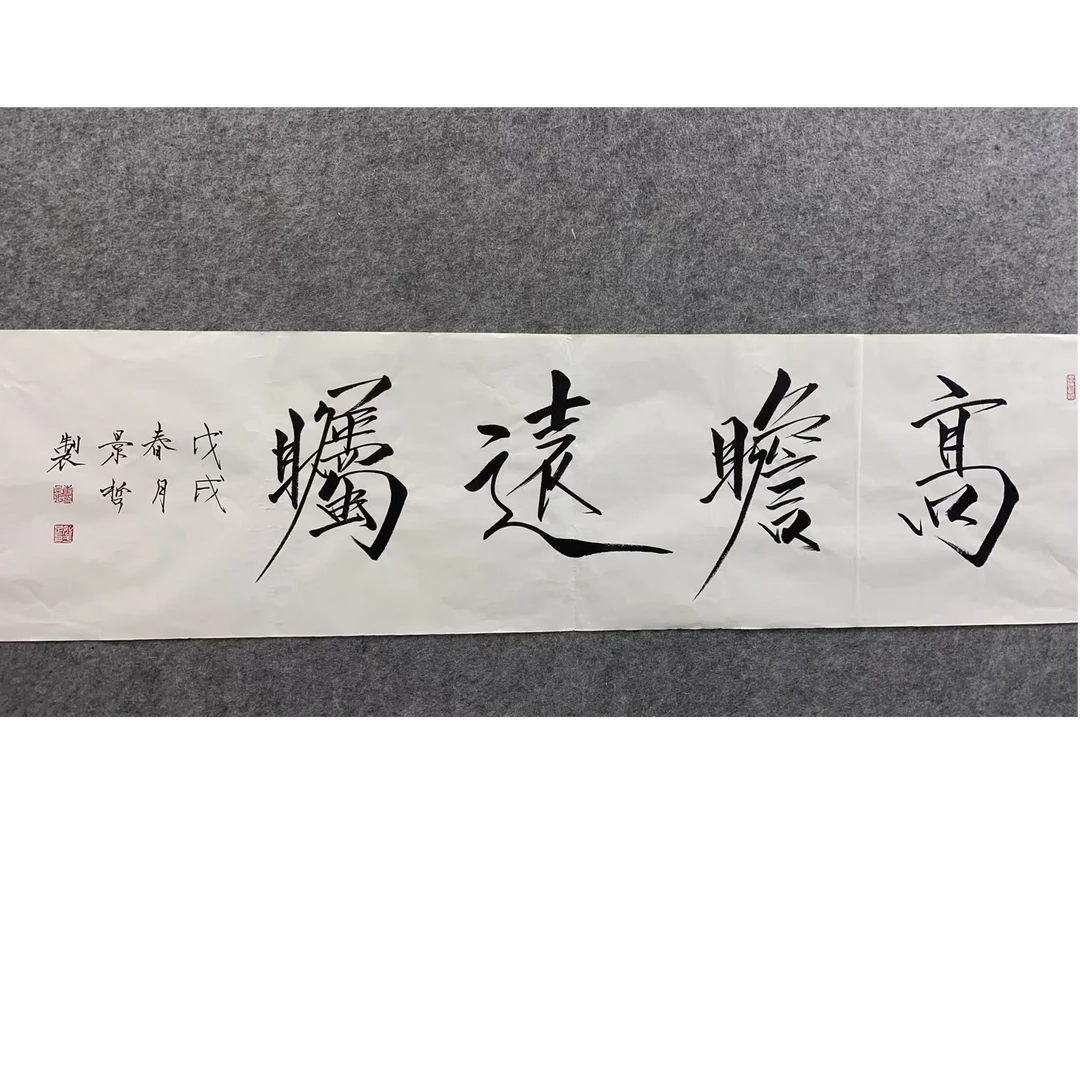 高瞻遠矚
戊戌
春月
景哲
製